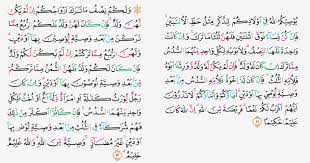 يُوصِيكُمُ ٱللَّهُ فِىٓ أَوْلَـٰدِكُمْ لِلذَّكَرِ مِثْلُ حَظِّ ٱلْأُنثَيَيْنِ
فَإِن كُنَّ نِسَآءً فَوْقَ ٱثْنَتَيْنِ فَلَهُنَّ ثُلُثَا مَا تَرَكَ وَإِن كَانَتْ
وَٰحِدَةً فَلَهَا ٱلنِّصْفُ وَلِأَبَوَيْهِ لِكُلِّ وَٰحِدٍ مِّنْهُمَا ٱلسُّدُسُ
مِمَّا تَرَكَ إِن كَانَ لَهُۥ وَلَدٌ فَإِن لَّمْ يَكُن لَّهُۥ وَلَدٌ وَوَرِثَهُۥٓ
أَبَوَاهُ فَلِأُمِّهِ ٱلثُّلُثُ فَإِن كَانَ لَهُۥٓ إِخْوَةٌ فَلِأُمِّهِ ٱلسُّدُسُ
مِنۢ بَعْدِ وَصِيَّةٍ يُوصِى بِهَآ أَوْ دَيْنٍ ءَابَآؤُكُمْ وَأَبْنَآؤُكُمْ لَا تَدْرُونَ
أَيُّهُمْ أَقْرَبُ لَكُمْ نَفْعًا فَرِيضَةً مِّنَ ٱللَّهِ إِنَّ ٱللَّهَ كَانَ
عَلِيمًا حَكِيمًا ١١
وَلَكُمْ نِصْفُ مَا تَرَكَ أَزْوَٰجُكُمْ إِن لَّمْ يَكُن
لَّهُنَّ وَلَدٌ فَإِن كَانَ لَهُنَّ وَلَدٌ فَلَكُمُ ٱلرُّبُعُ مِمَّا تَرَكْنَ
مِنۢ بَعْدِ وَصِيَّةٍ يُوصِينَ بِهَآ أَوْ دَيْنٍ وَلَهُنَّ
ٱلرُّبُعُ مِمَّا تَرَكْتُمْ إِن لَّمْ يَكُن لَّكُمْ وَلَدٌ
فَإِن كَانَ لَكُمْ وَلَدٌ فَلَهُنَّ ٱلثُّمُنُ مِمَّا تَرَكْتُم
مِّنۢ بَعْدِ وَصِيَّةٍ تُوصُونَ بِهَآ أَوْ دَيْنٍ وَإِن كَانَ
رَجُلٌ يُورَثُ كَلَـٰلَةً أَوِ ٱمْرَأَةٌ وَلَهُۥٓ أَخٌ أَوْ أُخْتٌ فَلِكُلِّ
وَٰحِدٍ مِّنْهُمَا ٱلسُّدُسُ فَإِن كَانُوٓا۟ أَكْثَرَ مِن ذَٰلِكَ
فَهُمْ شُرَكَآءُ فِى ٱلثُّلُثِ مِنۢ بَعْدِ وَصِيَّةٍ يُوصَىٰ بِهَآ
أَوْ دَيْنٍ غَيْرَ مُضَآرٍّ وَصِيَّةً مِّنَ ٱللَّهِ وَٱللَّهُ عَلِيمٌ
حَلِيمٌ ١٢